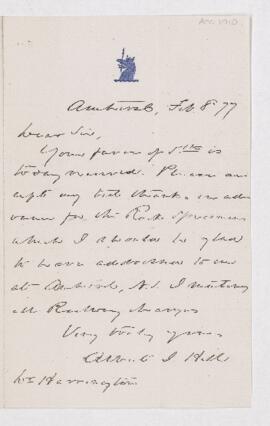 Amherst, Feb. 8th 77
Dear Sir,
Your favor of 5th is
to day received. Please ac-
cept my best thanks in ad-
vance for the Rock Specimens
which I should be glad
to have addressed to me
at Amherst, N.S. I meeting
all Railway charges
Very truly yours
Albert J Hill
Mr Harrington